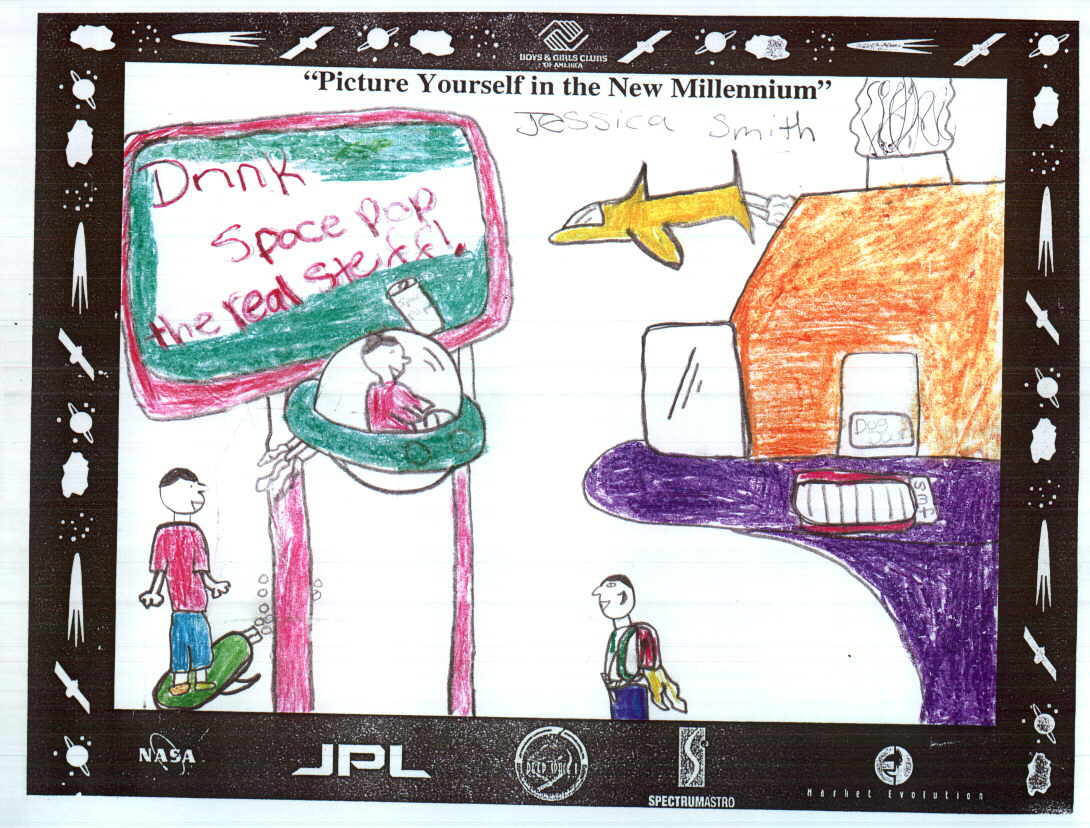 BOYS & GIRLS CLUBS
OF AMERICA
“Picture Yourself in the New Millennium”
Jessica Smith
Drink
Space Pop
the real stuff!
Space
Pop
Dog
NASA
JPL
DEEP SPACE 1
SPECTRUMASTRO
Market Evolution